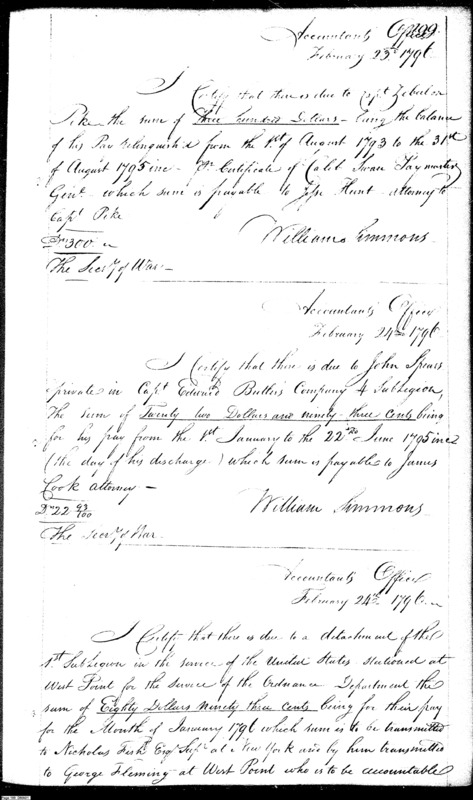 Accountants Office
February 23d 1796
I Certify that there is due to Capt Zebulon
Pike the sum of Three hundred Dollars - being the balance
of his Pay relinquish'd from the 1st of August 1793 to the 31st
of August 1795 inc - Pr Certificate of Caleb Swan Paymaster
Genl which sum is payable to Jesse Hunt - attorney to
Capt Pike
Drs 300
William Simmons
The Secry of War -
Accountants Office
February 24th 1796
I Certify that there is due to John Spears
private in Capt Edward Butlers Company 4 SubLegion,
The sum of Twenty two Dollars and ninety three cents being
for his pay from the 1st January to the 22nd June 1795 inc
(the day of his discharge) which sum is payable to James
Cook attorney -
Drs 22 93/100
William Simmons
The Secry of War
Accountants Office
February 24th 1796
I Certify that there is due to a detachment of the
1st SubLegion in the service of the United States stationed at
West Point for the service of the Ordnance Department the
sum of Eighty Dollars ninety three cents being for their pay
for the Month of January 1796 which sum is to be transmitted
to Nicholas Fish Esqr Supr at New York and by him transmitted
to George Fleming at West Point who is to be accountable